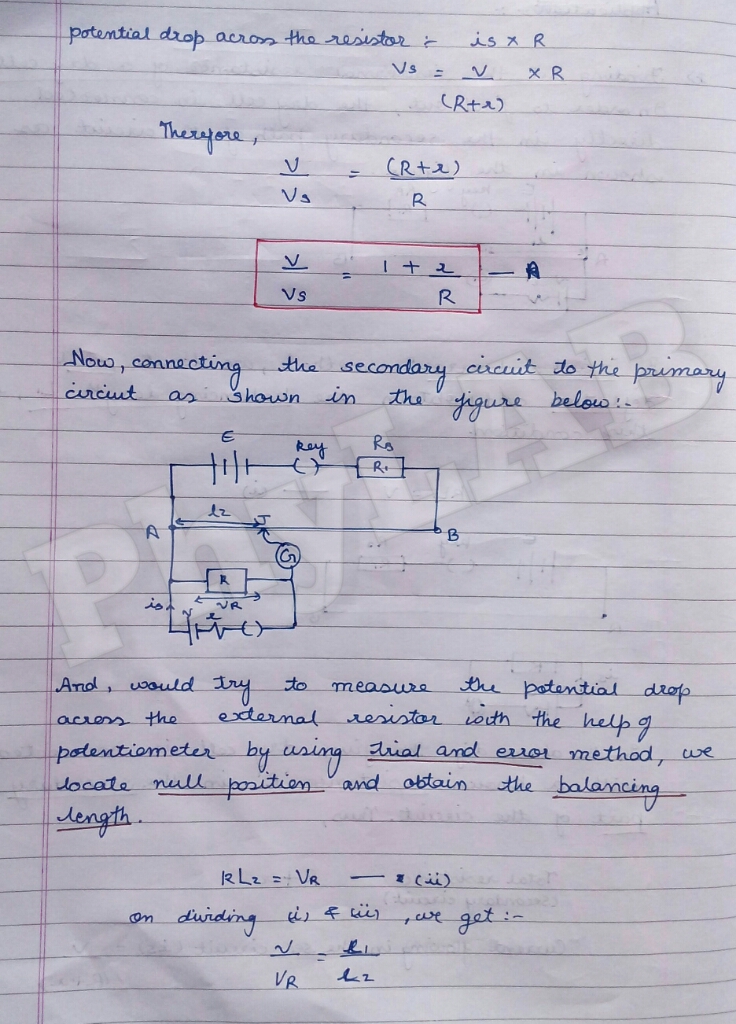 potential drop across the resistor :- is x R
Vs = V x R
(R+r)
Therefore,
V = (R+r)
Vs R
V = 1 + r — A
Vs R
Now, connecting the secondary circuit to the primary
circuit as shown in the figure below:-
E Key RB
R1
l2 J
A B
G
R
is VR
V r
And, would try to measure the potential drop
across the external resistor with the help of
potentiometer by using trial and error method, we
locate null position and obtain the balancing
length.
kL2 = VR — (ii)
on dividing (i) & (ii) , we get :-
V = l1
VR l2
PhyLAB